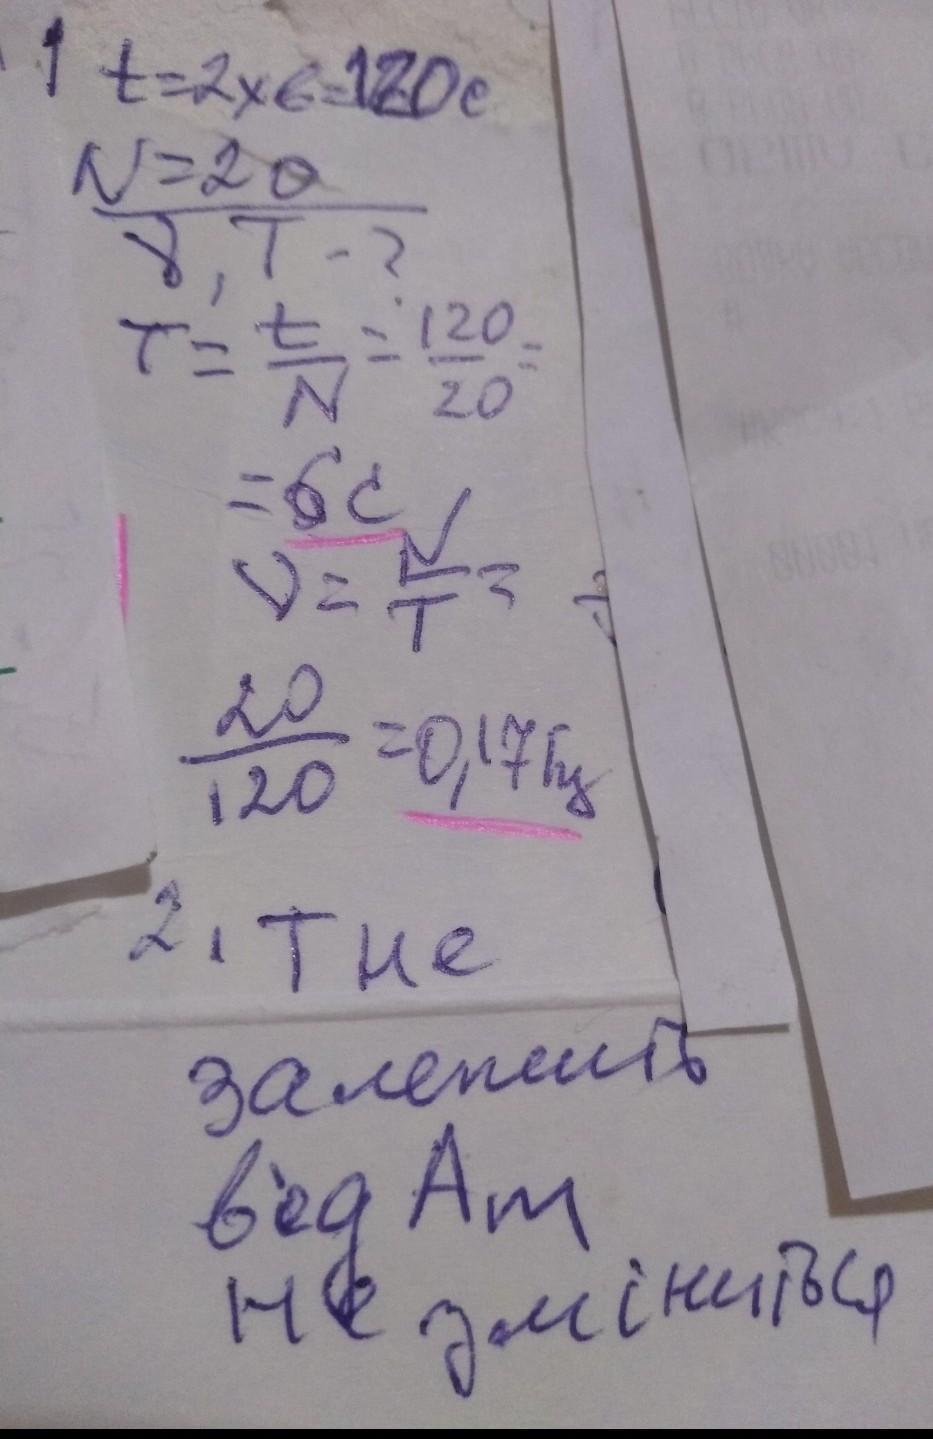 1 t=2хв=120с
N=20
γ, T-?
T = t/N = 120/20 =
= 6с
ν = N/T =
20/120 = 0,17Гц
2. T не
залежить
від Am
не зміниться